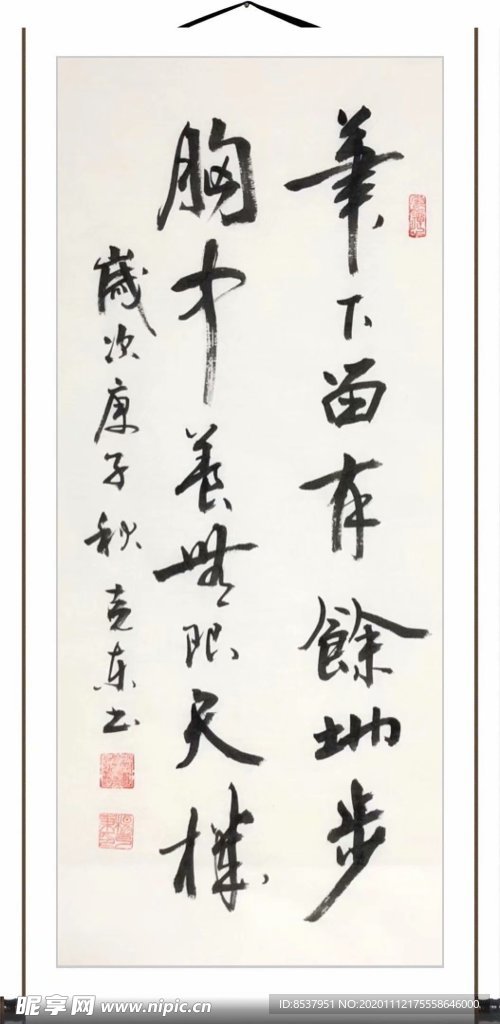 筆下留有餘地步
胸中養無限天機
歲次庚子秋克东书
昵享网 www.nipic.cn
ID:8537951 NO:20201112175558646000